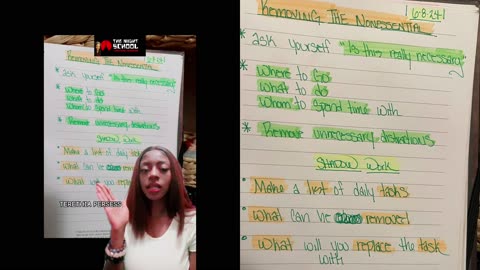 THE NIGHT
SCHOOL
REMOVING THE NONESSENTIAL
* ask yourself "Is this really necessary
* Where to Go
What to do
Whom to Spend time with
* Remove unnecessary distractions
SHADOW Work
• Make a list of daily tasks
• What can be removed
• What will you replace
TERETHIA PERSESS
REMOVING THE NONESSENTIAL
6-8-24
ask yourself "Is this really necessary
Where to Go
What to do
Whom to Spend time with
* Remove unnecessary distractions
SHADOW Work
• Make a list of daily tasks
• What can be removed
• What will you replace the task
with